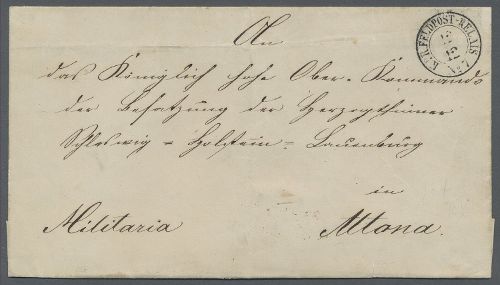 An
K.PR.FELDPOST-RELAIS
12
12
No 7
das Königlich hohe Ober-Kommando
der Besatzung der Herzogthümer
Schleswig = Holstein = Lauenburg
in
Militaria Altona.